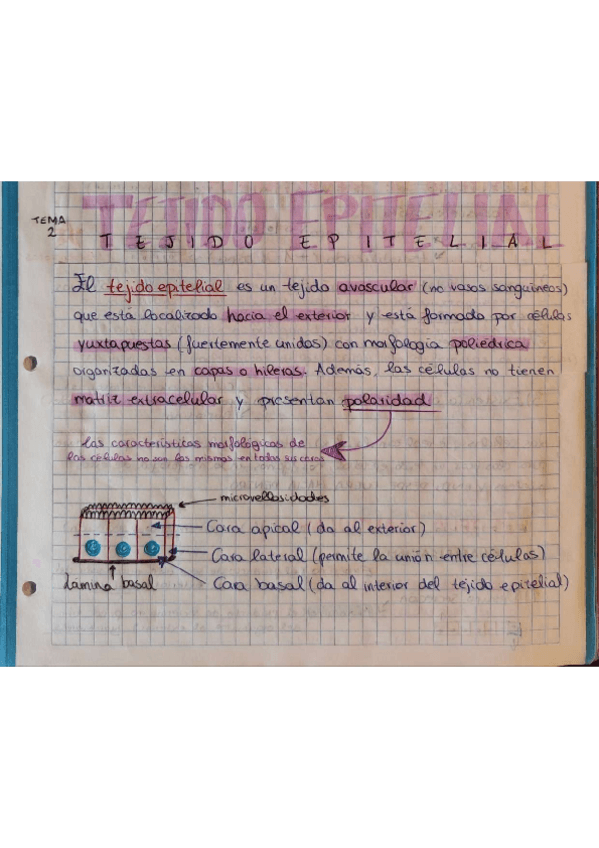 TEMA
2
TEJIDO EPITELIAL
TEJIDO EPITELIAL
El tejido epitelial es un tejido avascular (no vasos sanguíneos)
que está localizado hacia el exterior y está formado por células
yuxtapuestas (fuertemente unidas) con morfología poliédrica
organizadas en capas o hileras. Además, las células no tienen
matriz extracelular y presentan polaridad
Las características morfológicas de
las células no son las mismas en todas sus caras
microvellosidades
Cara apical (da al exterior)
Cara lateral (permite la unión entre células)
Lámina basal
Cara basal (da al interior del tejido epitelial)